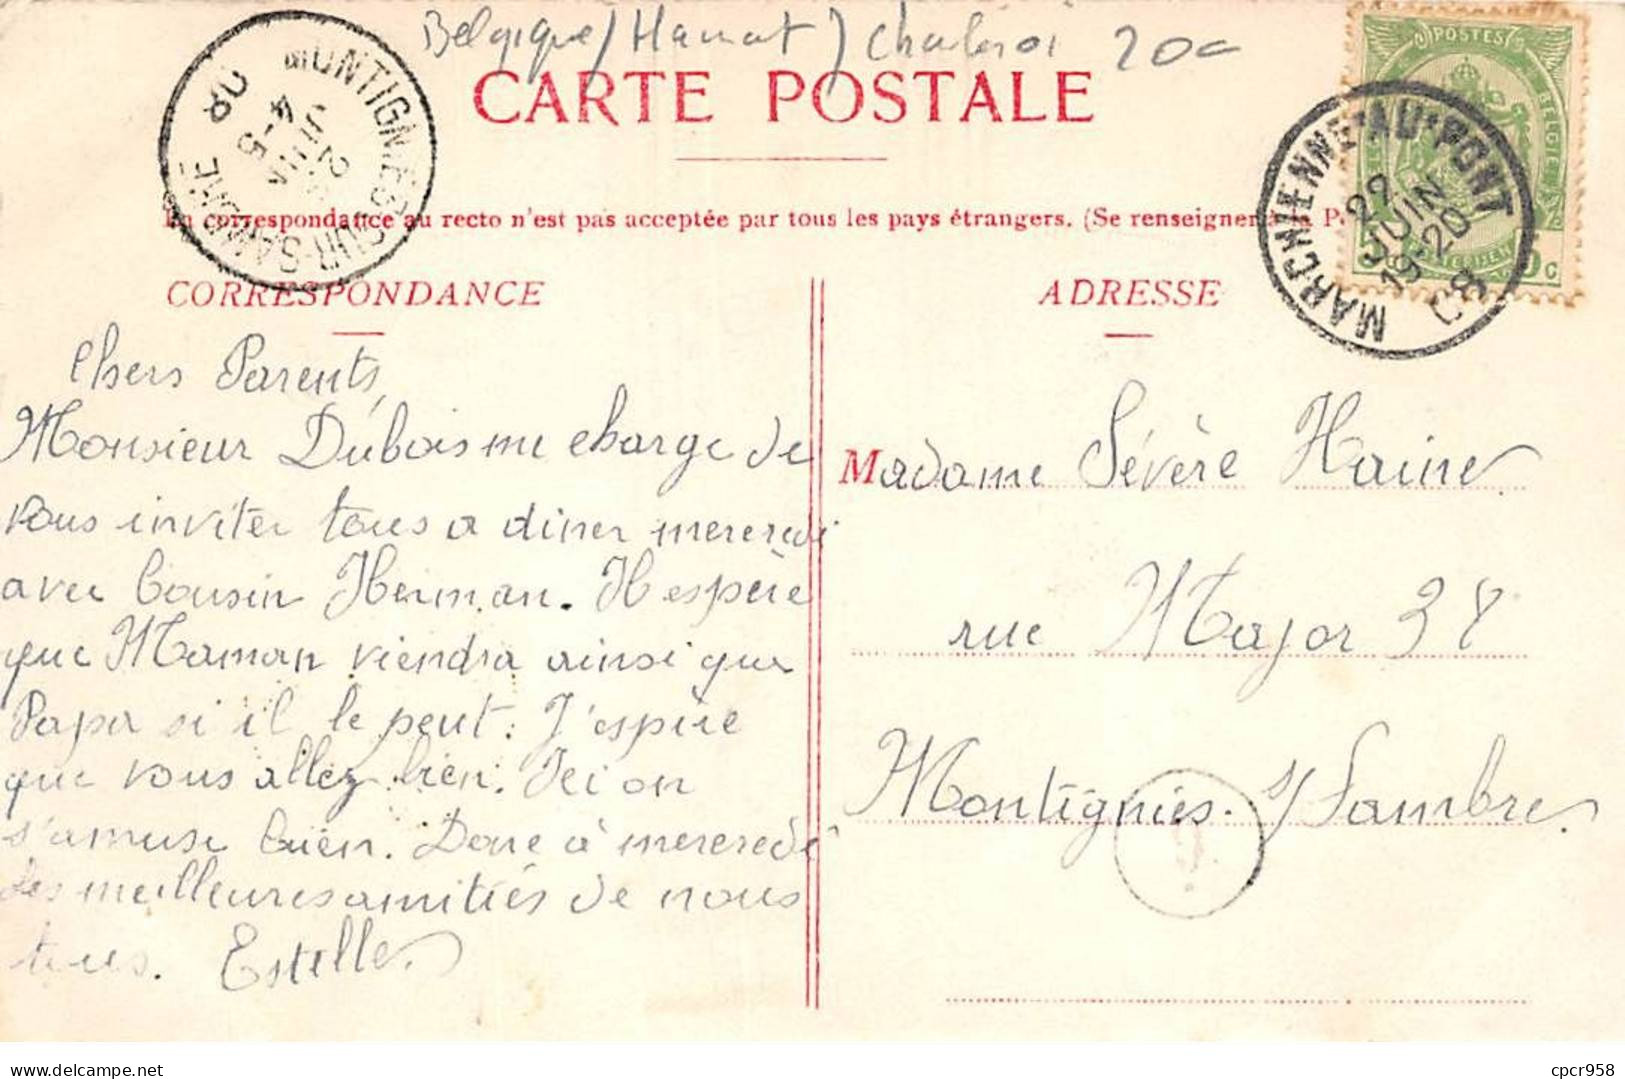 Belgique / Hainaut / Charleroi 20c
CARTE POSTALE
POSTES
BELGIE
MONTIGNIES-SUR-SAMBRE
4-5
JUIN
08
MARCHIENNE-AU-PONT
27
JUIN
19-20
08
La correspondance au recto n'est pas acceptée par tous les pays étrangers. (Se renseigner à la
CORRESPONDANCE
ADRESSE
Chers Parents,
Monsieur Dubois me charge de
vous inviter tous a diner mercredi
avec Cousin Herman. Il espère
que Maman viendra ainsi que
Papa si il le peut. J'espère
que vous allez bien. Ici on
s'amuse bien. Donc à mercredi
des meilleures amitiés de nous
tous. Estelle.
Madame Sévère Haine
rue Major 38
Montignies s/ Sambre.
delcampe.net
cpcr958